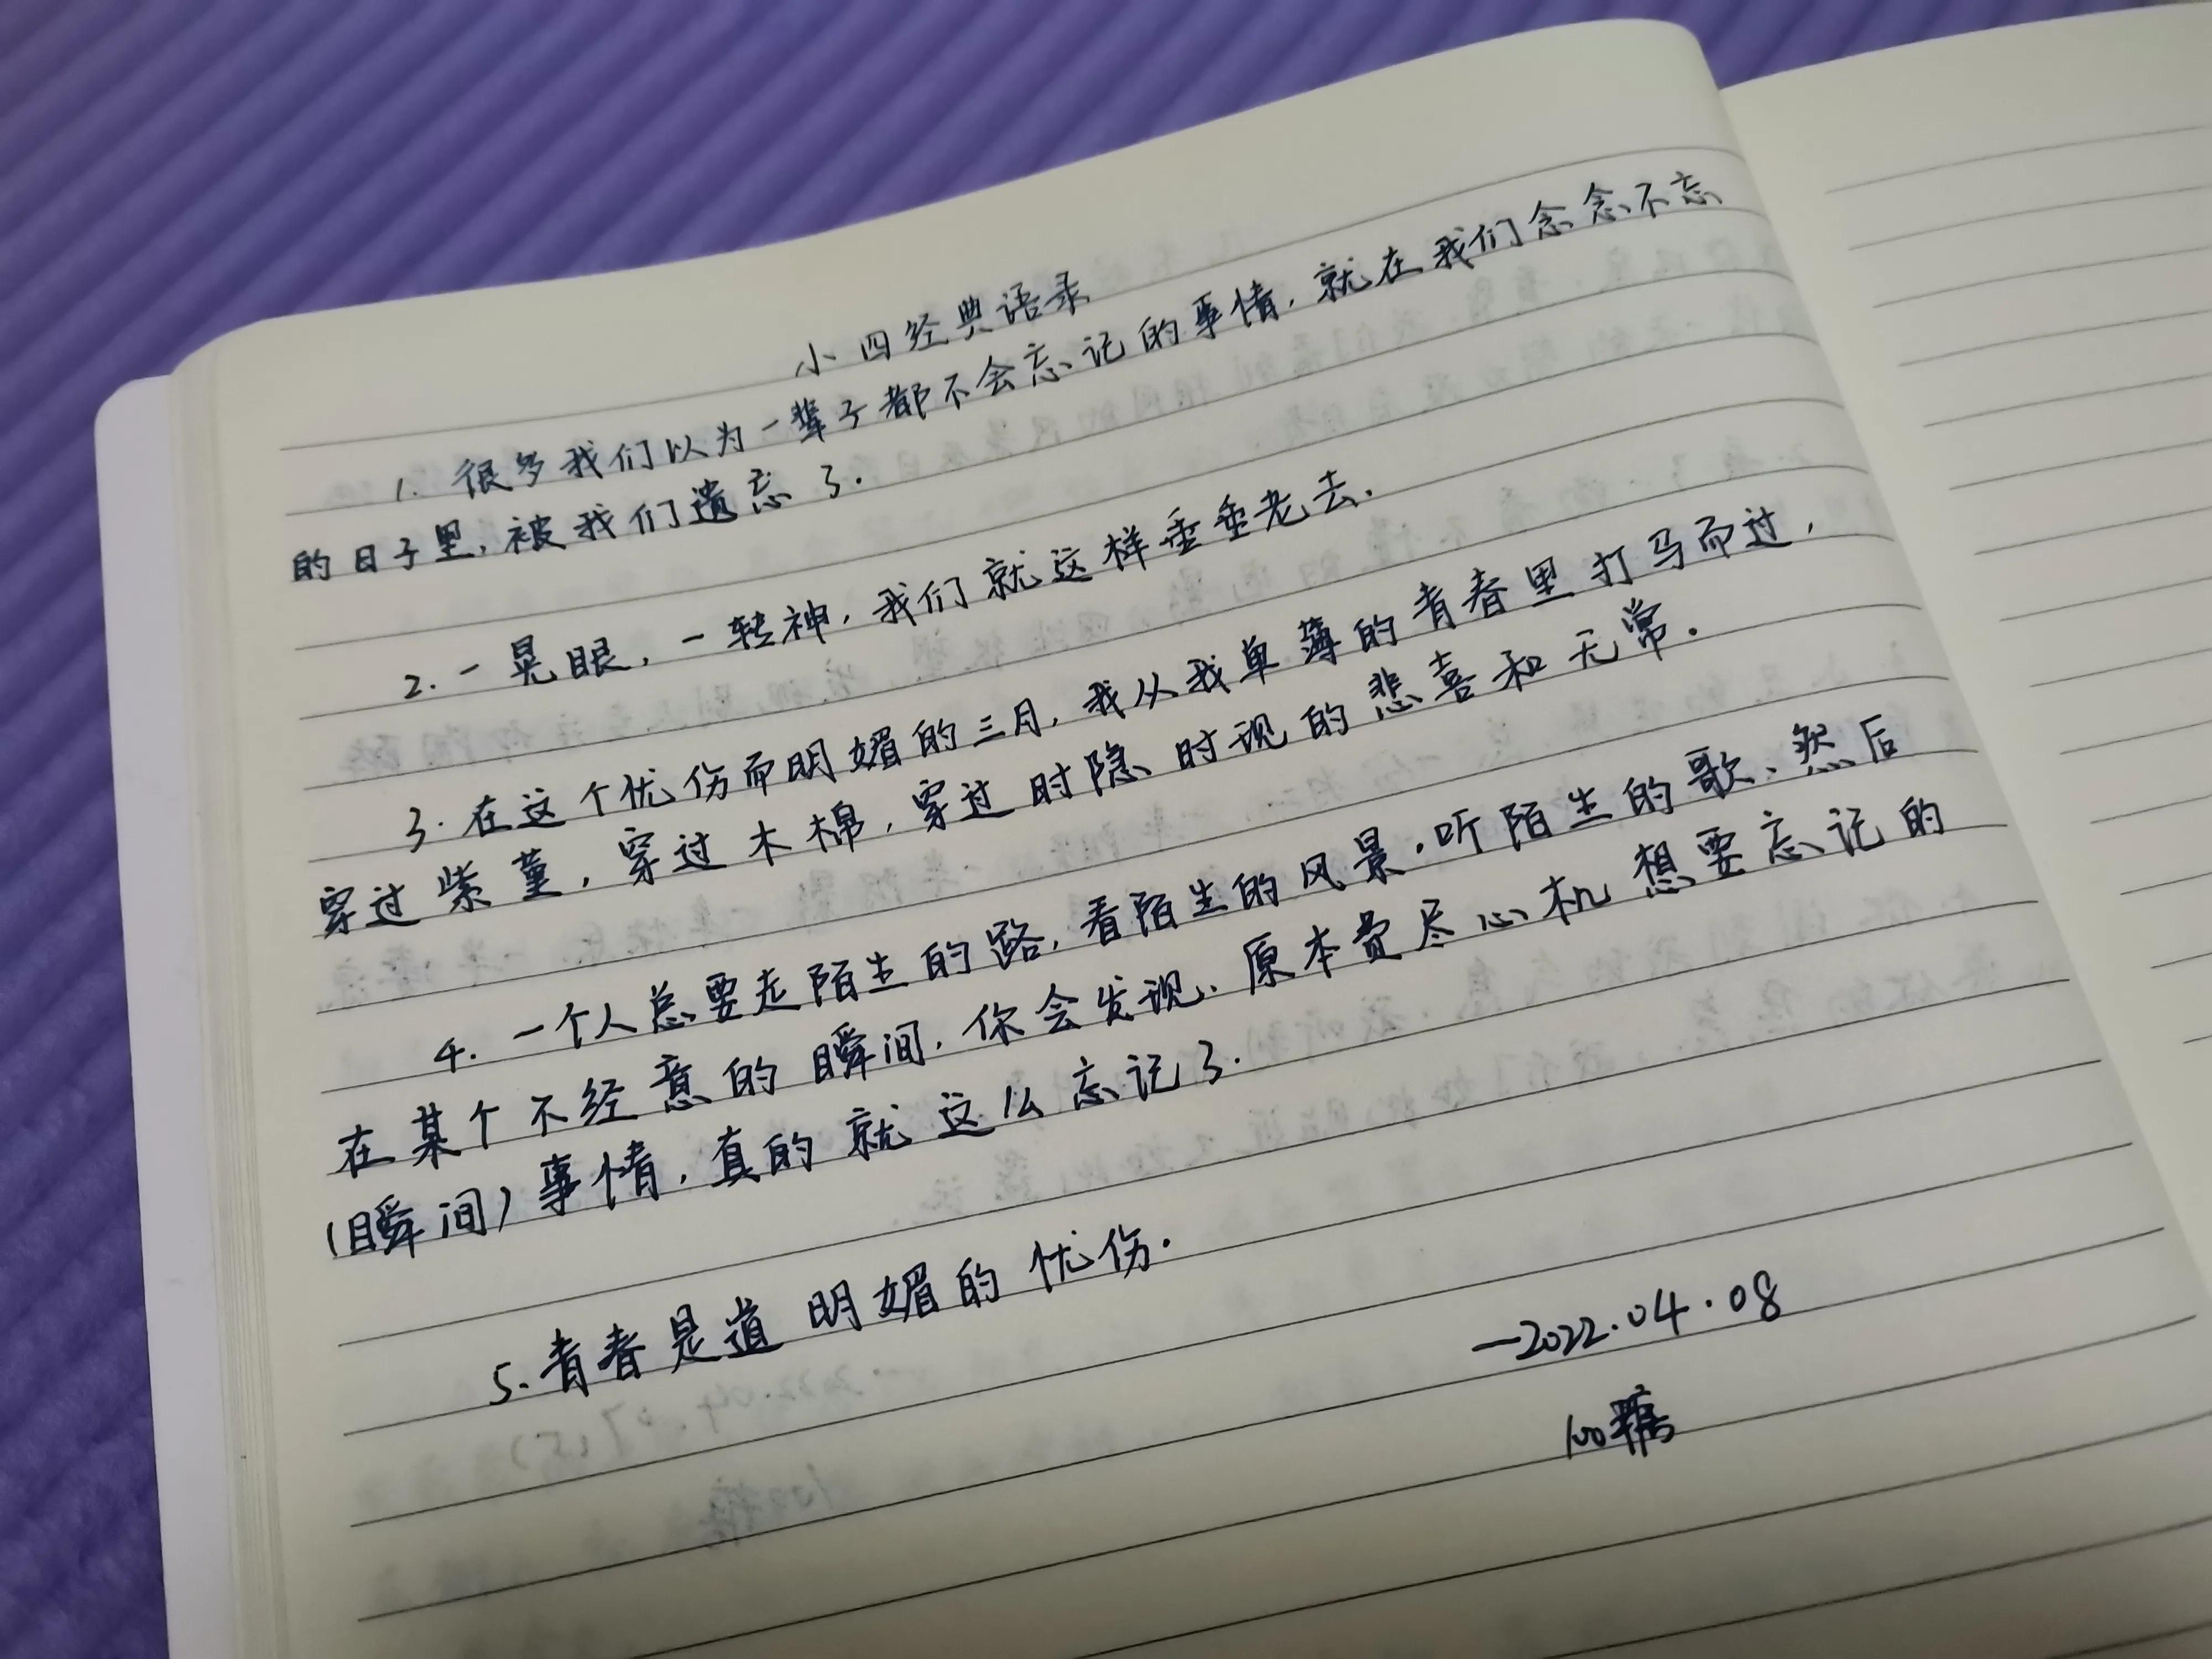 小四经典语录
1. 很多我们以为一辈子都不会忘记的事情，就在我们念念不忘
的日子里，被我们遗忘了.
2. 一晃眼，一转神，我们就这样垂垂老去.
3. 在这个忧伤而明媚的三月，我从我单薄的青春里打马而过，
穿过紫堇，穿过木棉，穿过时隐时现的悲喜和无常.
4. 一个人总要走陌生的路，看陌生的风景，听陌生的歌、然后
在某个不经意的瞬间，你会发现、原本费尽心机想要忘记的
(瞬间)事情，真的就这么忘记了.
5. 青春是道明媚的忧伤.
—2022.04.08
100糖